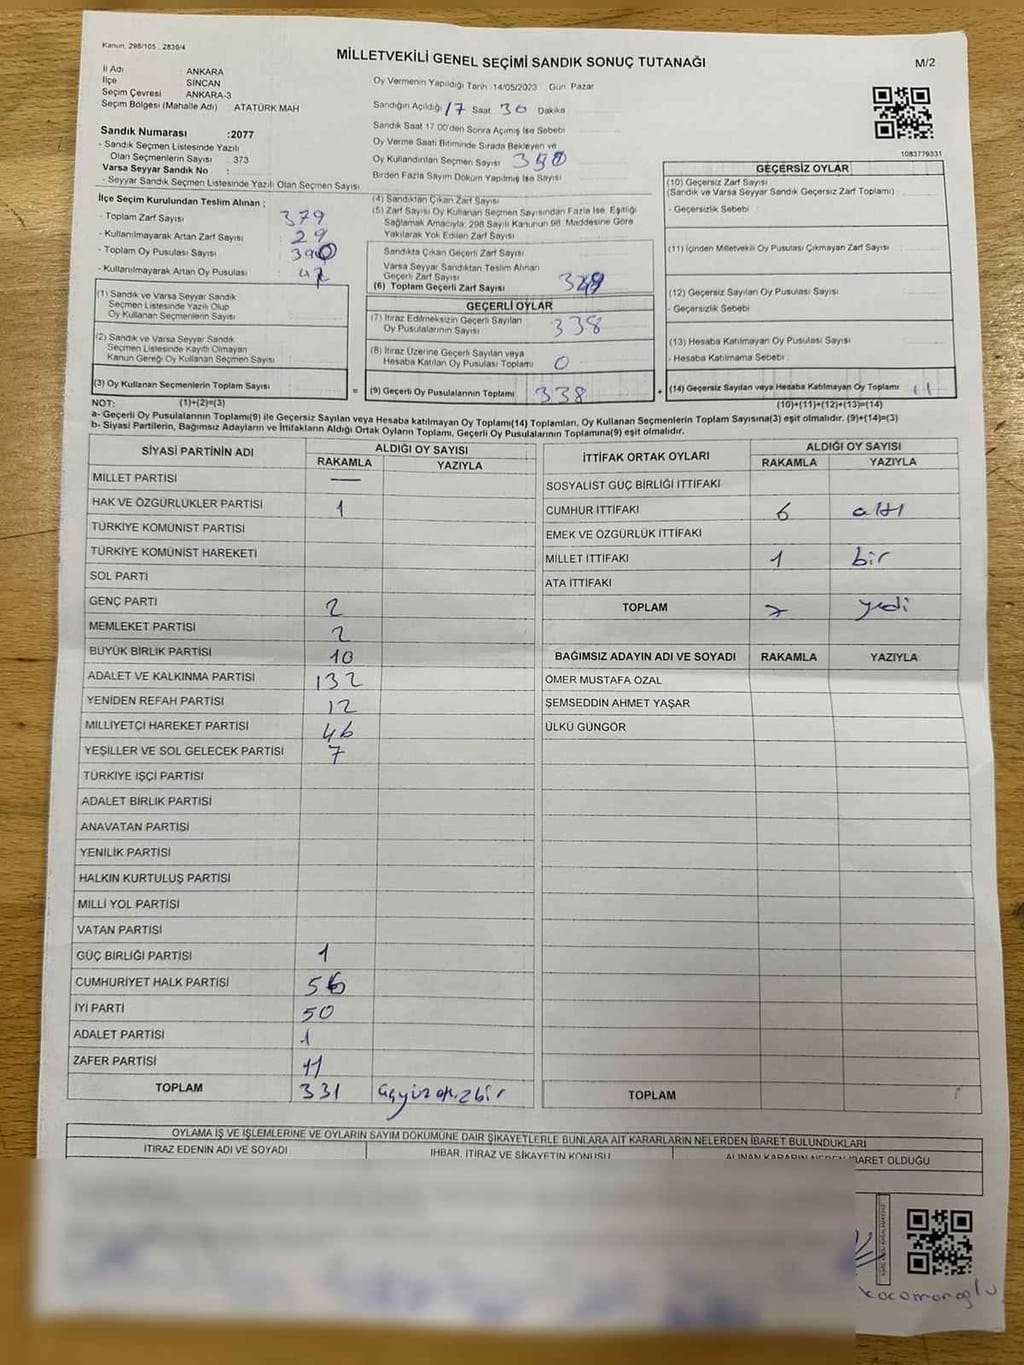 Kanun: 298/105 , 2839/4
MİLLETVEKİLİ GENEL SEÇİMİ SANDIK SONUÇ TUTANAĞI
M/2
İl Adı ANKARA
İlçe SİNCAN
Seçim Çevresi ANKARA-3
Seçim Bölgesi (Mahalle Adı) ATATÜRK MAH
Sandık Numarası :2077
- Sandık Seçmen Listesinde Yazılı
Olan Seçmenlerin Sayısı : 373
Varsa Seyyar Sandık No :
- Seyyar Sandık Seçmen Listesinde Yazılı Olan Seçmen Sayısı
Oy Vermenin Yapıldığı Tarih :14/05/2023 Gün Pazar
Sandığın Açıldığı 17 Saat 30 Dakika
Sandık Saat 17.00'den Sonra Açılmış İse Sebebi
Oy Verme Saati Bitiminde Sırada Bekleyen ve
Oy Kullandırılan Seçmen Sayısı
Birden Fazla Sayım Döküm Yapılmış İse Sayısı
1083779331
İlçe Seçim Kurulundan Teslim Alınan :
- Toplam Zarf Sayısı 379
- Kullanılmayarak Artan Zarf Sayısı 29
- Toplam Oy Pusulası Sayısı 390
- Kullanılmayarak Artan Oy Pusulası
(1) Sandık ve Varsa Seyyar Sandık
Seçmen Listesinde Yazılı Olup
Oy Kullanan Seçmenlerin Sayısı
(2) Sandık ve Varsa Seyyar Sandık
Seçmen Listesinde Kayıtlı Olmayan
Kanun Gereği Oy Kullanan Seçmen Sayısı
(3) Oy Kullanan Seçmenlerin Toplam Sayısı =
(1)+(2)=(3)
(4) Sandıktan Çıkan Zarf Sayısı
(5) Zarf Sayısı Oy Kullanan Seçmen Sayısından Fazla İse, Eşitliği
Sağlamak Amacıyla; 298 Sayılı Kanunun 98. Maddesine Göre
Yakılarak Yok Edilen Zarf Sayısı
Sandıkta Çıkan Geçerli Zarf Sayısı
Varsa Seyyar Sandıktan Teslim Alınan
Geçerli Zarf Sayısı
(6) Toplam Geçerli Zarf Sayısı
GEÇERLİ OYLAR
(7) İtiraz Edilmeksizin Geçerli Sayılan
Oy Pusulalarının Sayısı 338
(8) İtiraz Üzerine Geçerli Sayılan veya
Hesaba Katılan Oy Pusulası Toplamı 0
(9) Geçerli Oy Pusulalarının Toplamı 338 +
GEÇERSİZ OYLAR
(10) Geçersiz Zarf Sayısı
(Sandık ve Varsa Seyyar Sandık Geçersiz Zarf Toplamı)
- Geçersizlik Sebebi
(11) İçinden Milletvekili Oy Pusulası Çıkmayan Zarf Sayısı
(12) Geçersiz Sayılan Oy Pusulası Sayısı
- Geçersizlik Sebebi
(13) Hesaba Katılmayan Oy Pusulası Sayısı
- Hesaba Katılmama Sebebi
(14) Geçersiz Sayılan veya Hesaba Katılmayan Oy Toplamı 11
(10)+(11)+(12)+(13)=(14)
NOT:
a- Geçerli Oy Pusulalarının Toplamı(9) ile Geçersiz Sayılan veya Hesaba katılmayan Oy Toplamı(14) Toplamları, Oy Kullanan Seçmenlerin Toplam Sayısına(3) eşit olmalıdır. (9)+(14)=(3)
b- Siyasi Partilerin, Bağımsız Adayların ve İttifakların Aldığı Ortak Oyların Toplamı, Geçerli Oy Pusulalarının Toplamına(9) eşit olmalıdır.
SİYASİ PARTİNİN ADI ALDIĞI OY SAYISI
RAKAMLA YAZIYLA
MİLLET PARTİSİ —
HAK VE ÖZGÜRLÜKLER PARTİSİ 1
TÜRKİYE KOMÜNİST PARTİSİ
TÜRKİYE KOMÜNİST HAREKETİ
SOL PARTİ
GENÇ PARTİ 2
MEMLEKET PARTİSİ 2
BÜYÜK BİRLİK PARTİSİ 10
ADALET VE KALKINMA PARTİSİ 132
YENİDEN REFAH PARTİSİ 12
MİLLİYETÇİ HAREKET PARTİSİ 46
YEŞİLLER VE SOL GELECEK PARTİSİ 7
TÜRKİYE İŞÇİ PARTİSİ
ADALET BİRLİK PARTİSİ
ANAVATAN PARTİSİ
YENİLİK PARTİSİ
HALKIN KURTULUŞ PARTİSİ
MİLLİ YOL PARTİSİ
VATAN PARTİSİ
GÜÇ BİRLİĞİ PARTİSİ 1
CUMHURİYET HALK PARTİSİ 56
İYİ PARTİ 50
ADALET PARTİSİ 1
ZAFER PARTİSİ 11
TOPLAM 331 üçyüzotuzbir
İTTİFAK ORTAK OYLARI ALDIĞI OY SAYISI
RAKAMLA YAZIYLA
SOSYALİST GÜÇ BİRLİĞİ İTTİFAKI
CUMHUR İTTİFAKI 6 altı
EMEK VE ÖZGÜRLÜK İTTİFAKI
MİLLET İTTİFAKI 1 bir
ATA İTTİFAKI
TOPLAM 7 yedi
BAĞIMSIZ ADAYIN ADI VE SOYADI RAKAMLA YAZIYLA
ÖMER MUSTAFA ÖZAL
ŞEMSEDDİN AHMET YAŞAR
ÜLKÜ GÜNGÖR
TOPLAM
OYLAMA İŞ VE İŞLEMLERİNE VE OYLARIN SAYIM DÖKÜMÜNE DAİR ŞİKAYETLERLE BUNLARA AİT KARARLARIN NELERDEN İBARET BULUNDUKLARI
İTİRAZ EDENİN ADI VE SOYADI İHBAR, İTİRAZ VE ŞİKAYETİN KONUSU ALINAN KARARIN NEDEN İBARET OLDUĞU